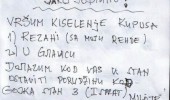 VRŠIM KISELENJE KUPUSA
1) REZANI (SA MOJE RENDE)
2) U GLAVICU
DOLAZIM KOD VAS U STAN
OSTAVITI PORUDŽBINU KOD
STAN 3 (ISPRAT)